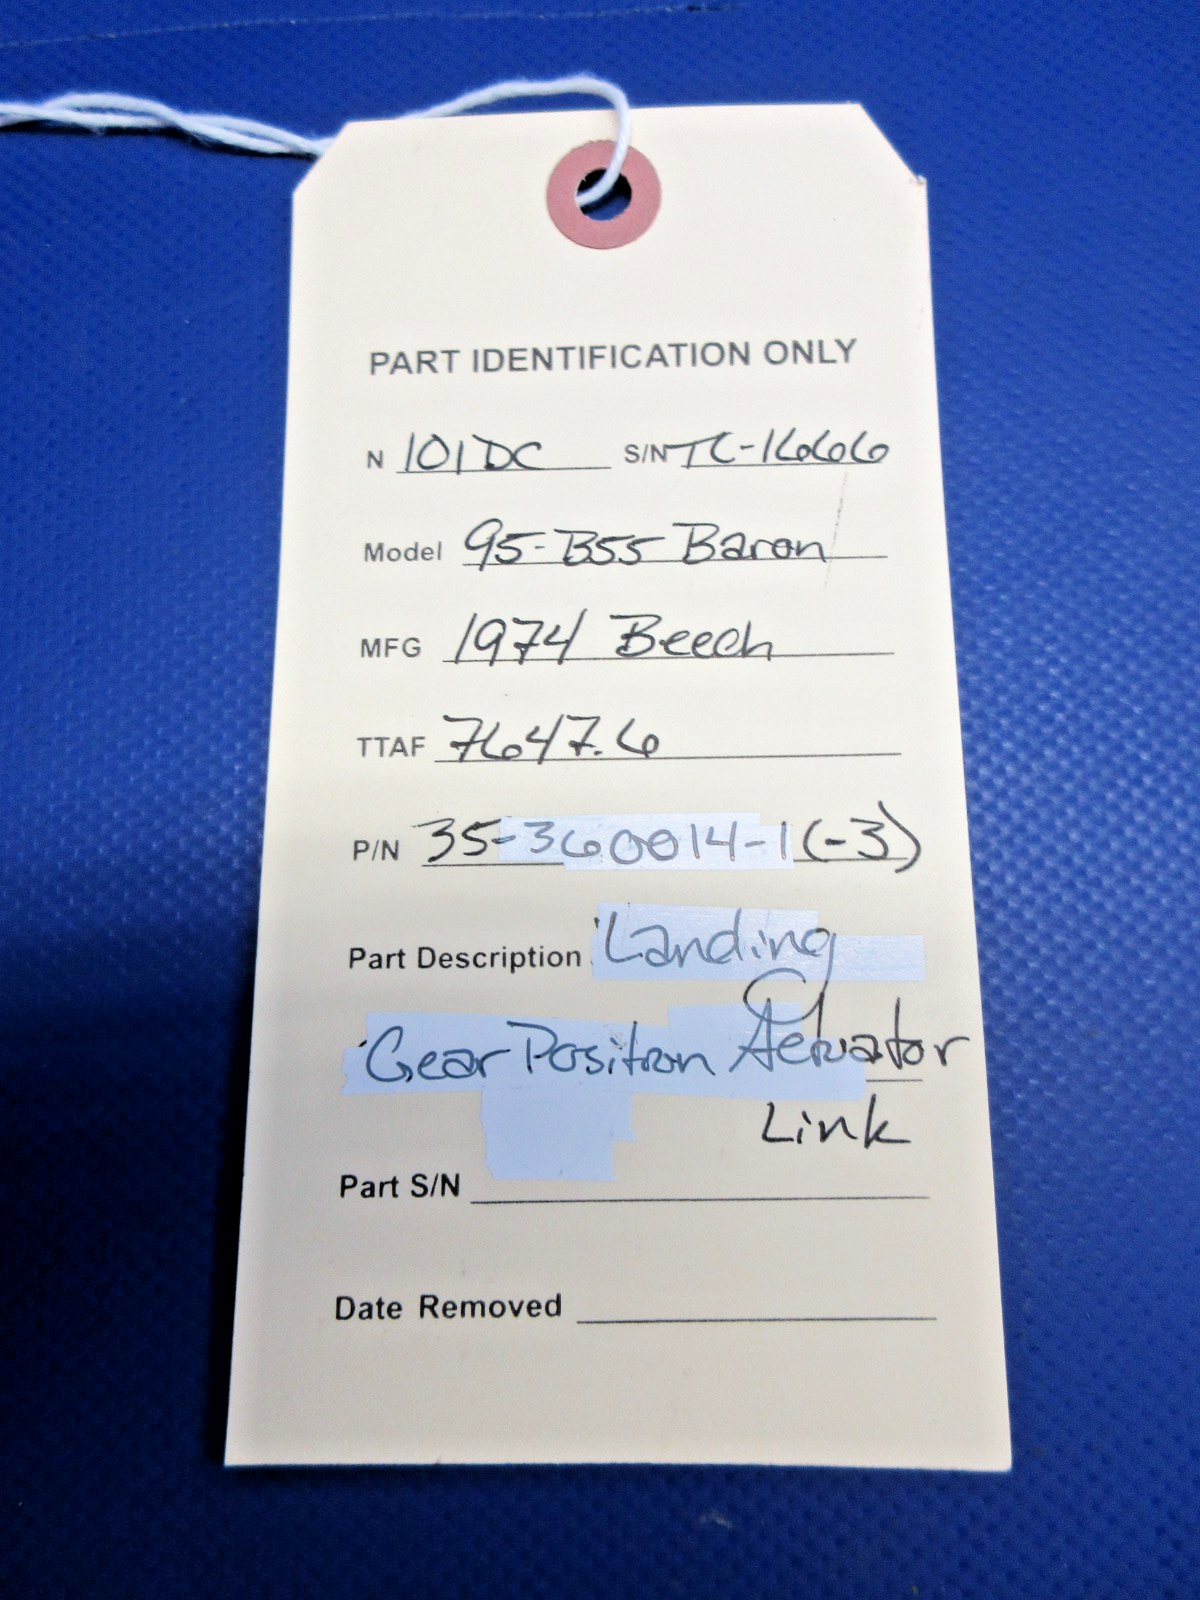 PART IDENTIFICATION ONLY
N 101DC S/N TC-1666
Model 95-B55 Baron
MFG 1974 Beech
TTAF 7647.6
P/N 35-360014-1(-3)
Part Description Landing
Gear Position Actuator
Link
Part S/N
Date Removed